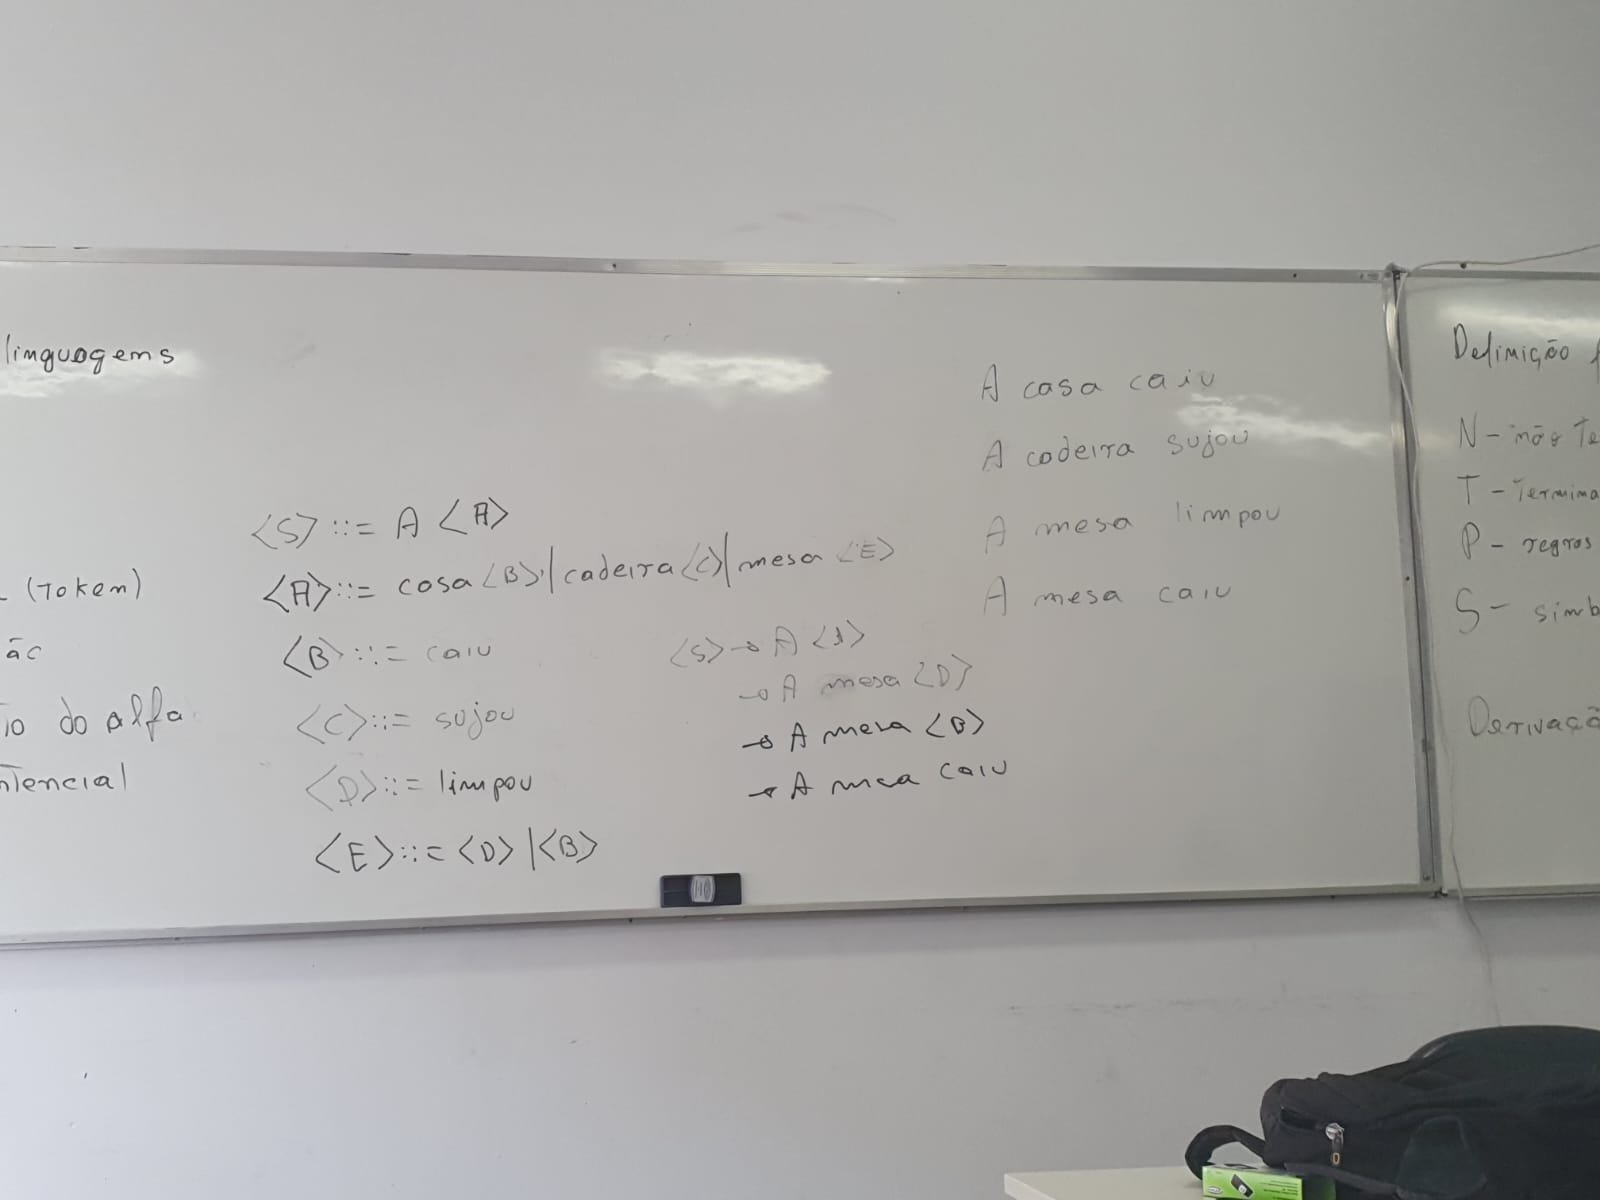 linguagens
(Token)
ão do alfa
ntencial
<S> ::= A <A>
<A> ::= casa <B> | cadeira <C> | mesa <E>
<B> ::= caiu
<C> ::= sujou
<D> ::= limpou
<E> ::= <D> | <B>
<S> → A <A>
→ A mesa <D>
→ A mesa <B>
→ A mesa caiu
A casa caiu
A cadeira sujou
A mesa limpou
A mesa caiu
Definição f
N - não Te
T - Termina
P - regras
S - simb
Derivaçã